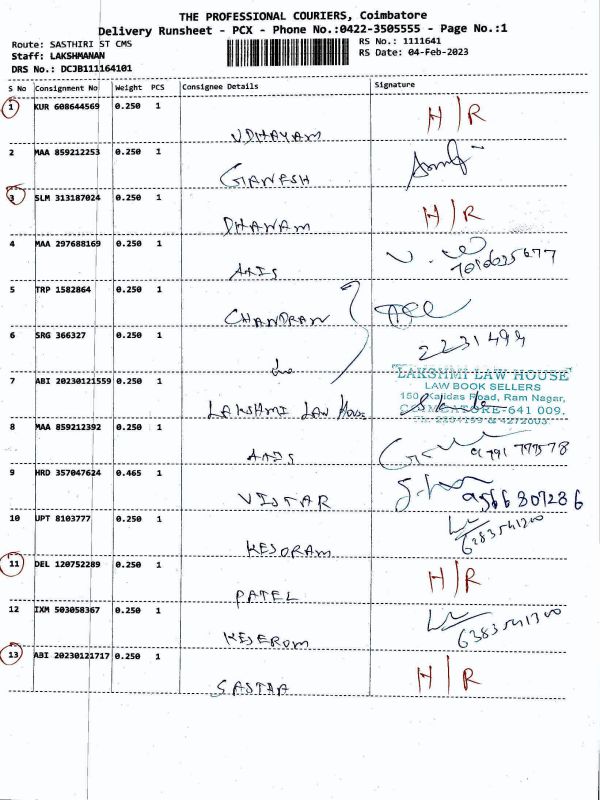 THE PROFESSIONAL COURIERS, Coimbatore
Delivery Runsheet - PCX - Phone No.:0422-3505555 - Page No.:1
Route: SASTHIRI ST CMS RS No.: 1111641
Staff: LAKSHMANAN RS Date: 04-Feb-2023
DRS No.: DCJB111164101
S No Consignment No Weight PCS Consignee Details Signature
1 KUR 608644569 0.250 1 H|R
UDHAYAM
2 MAA 859212253 0.250 1
GANESH
3 SLM 313187024 0.250 1 H|R
DHANAM
4 MAA 297688169 0.250 1
AAIS
5 TRP 1582864 0.250 1
CHANDRAN
6 SRG 366327 0.250 1 2231499
do
7 ABI 20230121559 0.250 1 LAKSHMI LAW HOUSE
LAW BOOK SELLERS
150, Kalidas Road, Ram Nagar,
LAKSHMI LAW House COIMBATORE-641 009.
8 MAA 859212392 0.250 1
AAIS
9 HRD 357047624 0.465 1
VISTAR 9566807286
10 UPT 8103777 0.250 1
KESORAM
11 DEL 120752289 0.250 1 H|R
PATEL
12 IXM 503058367 0.250 1
KESEROM
13 ABI 20230121717 0.250 1 H|R